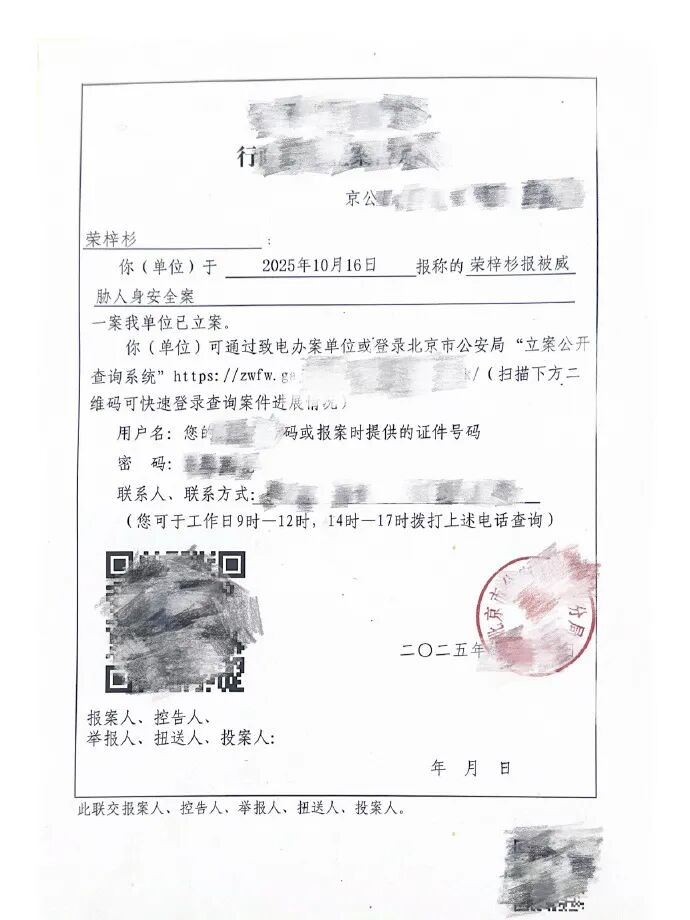 行
京公
荣梓杉 :
你（单位）于 2025年10月16日 报称的 荣梓杉报被威
胁人身安全案
一案我单位已立案。
你（单位）可通过致电办案单位或登录北京市公安局“立案公开
查询系统”https://zwfw.ga /（扫描下方二
维码可快速登录查询案件进展情况）
用户名：您的 码或报案时提供的证件号码
密 码：
联系人、联系方式：
（您可于工作日9时—12时，14时—17时拨打上述电话查询）
北京市公 分局
二〇二五年 日
报案人、控告人、
举报人、扭送人、投案人：
年 月 日
此联交报案人、控告人、举报人、扭送人、投案人。